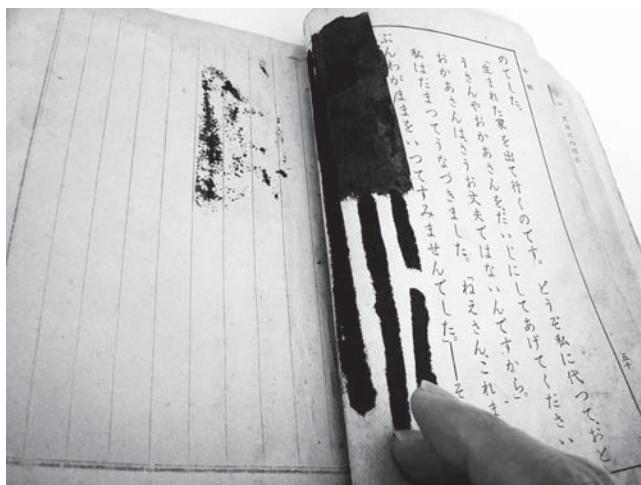 のでした。
「生まれた家を出て行くのです。どうぞ私に代つて、おと
うさんやおかあさんをだいじにしてあげてください。
おかあさんは、さうお丈夫ではないんですから。」
私はだまつてうなづきました。「ねえさん、これま
ぶんわがままをいつてすみませんでした。」――そ
五十